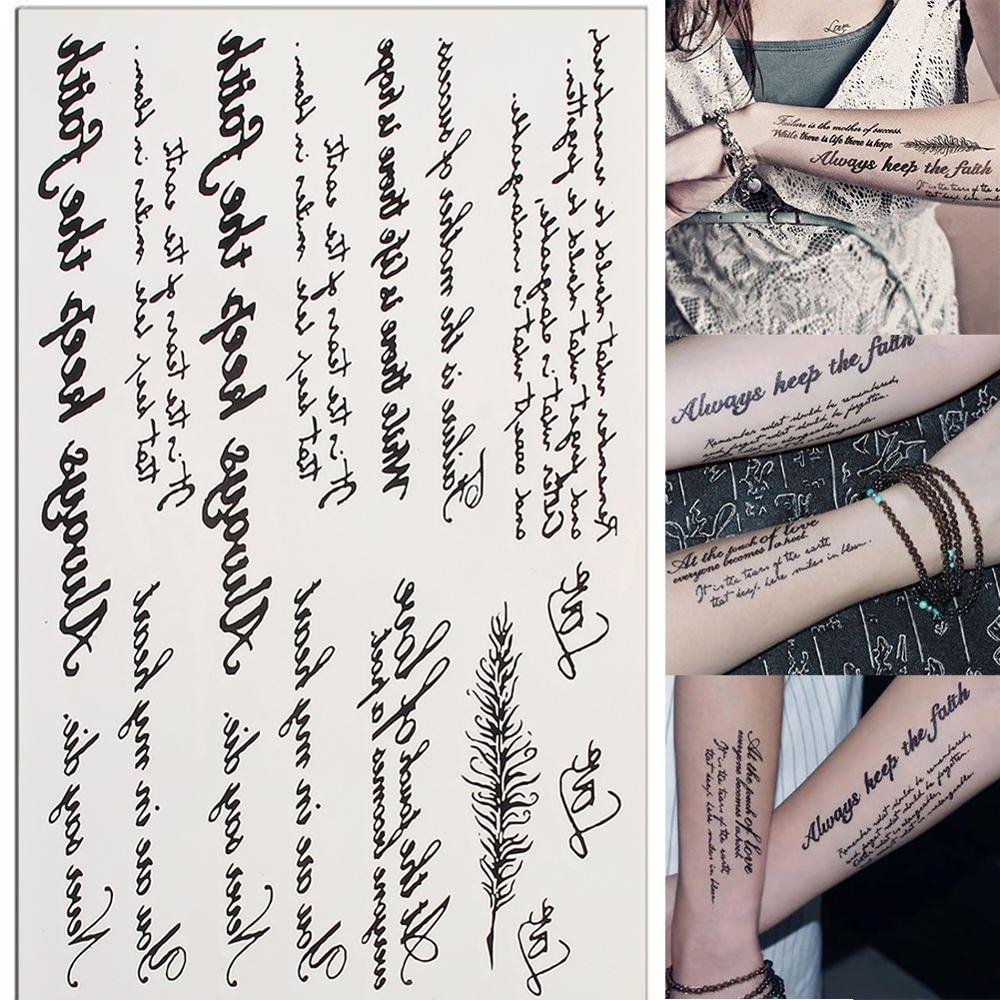 Always keep the faith
Never say die.
It is the tears of the earth
You are in my heart
Always keep the faith
Never say die.
It is the tears of the earth
You are in my heart
While there is life there is hope
Failure is the mother of success.
At the touch of love
everyone becomes a
Remember what should be remembered,
and forget what should be forgotten.
what is changeable,
and
Love
Love
Love
Love
Failure is the mother of success.
While there is life there is hope
Always keep the faith
It is the tears of the e
Always keep the faith
Remember what should be remembered,
and forget what should be forgotten.
At the touch of love
everyone becomes
It is the tears of the earth
that smiles in
At the touch of love
everyone becomes
It is the tears of the earth
that smiles in
Always keep the faith
Remember what should be remembered,
and forget what should be forgotten.